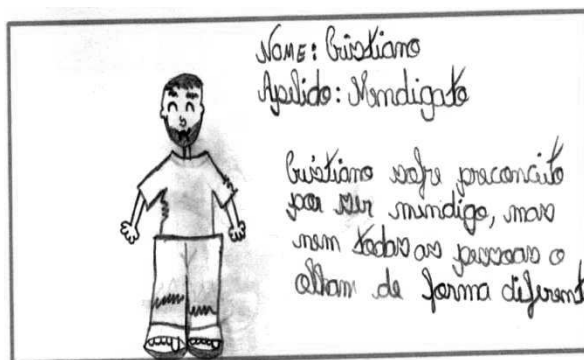 Nome: Cristiano
Apelido: Mendigato
Cristiano sofre preconceito
por ser mendigo, mas
nem todas as pessoas o
olham de forma diferent